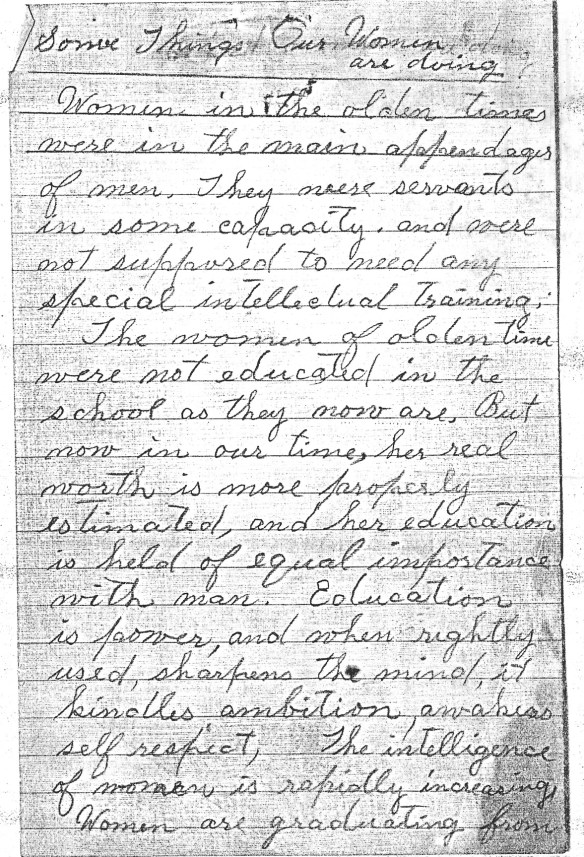 Some Things Our Women
are doing
Women in the olden times
were in the main appendages
of men. They were servants
in some capacity. and were
not supposed to need any
special intellectual training.
The women of olden time
were not educated in the
school as they now are, But
now in our time, her real
worth is more properly
estimated, and her education
is held of equal importance
with man. Education
is power, and when rightly
used, sharpens the mind, it
kindles ambition, awakens
self respect, The intelligence
of women is rapidly increasing,
Women are graduating from